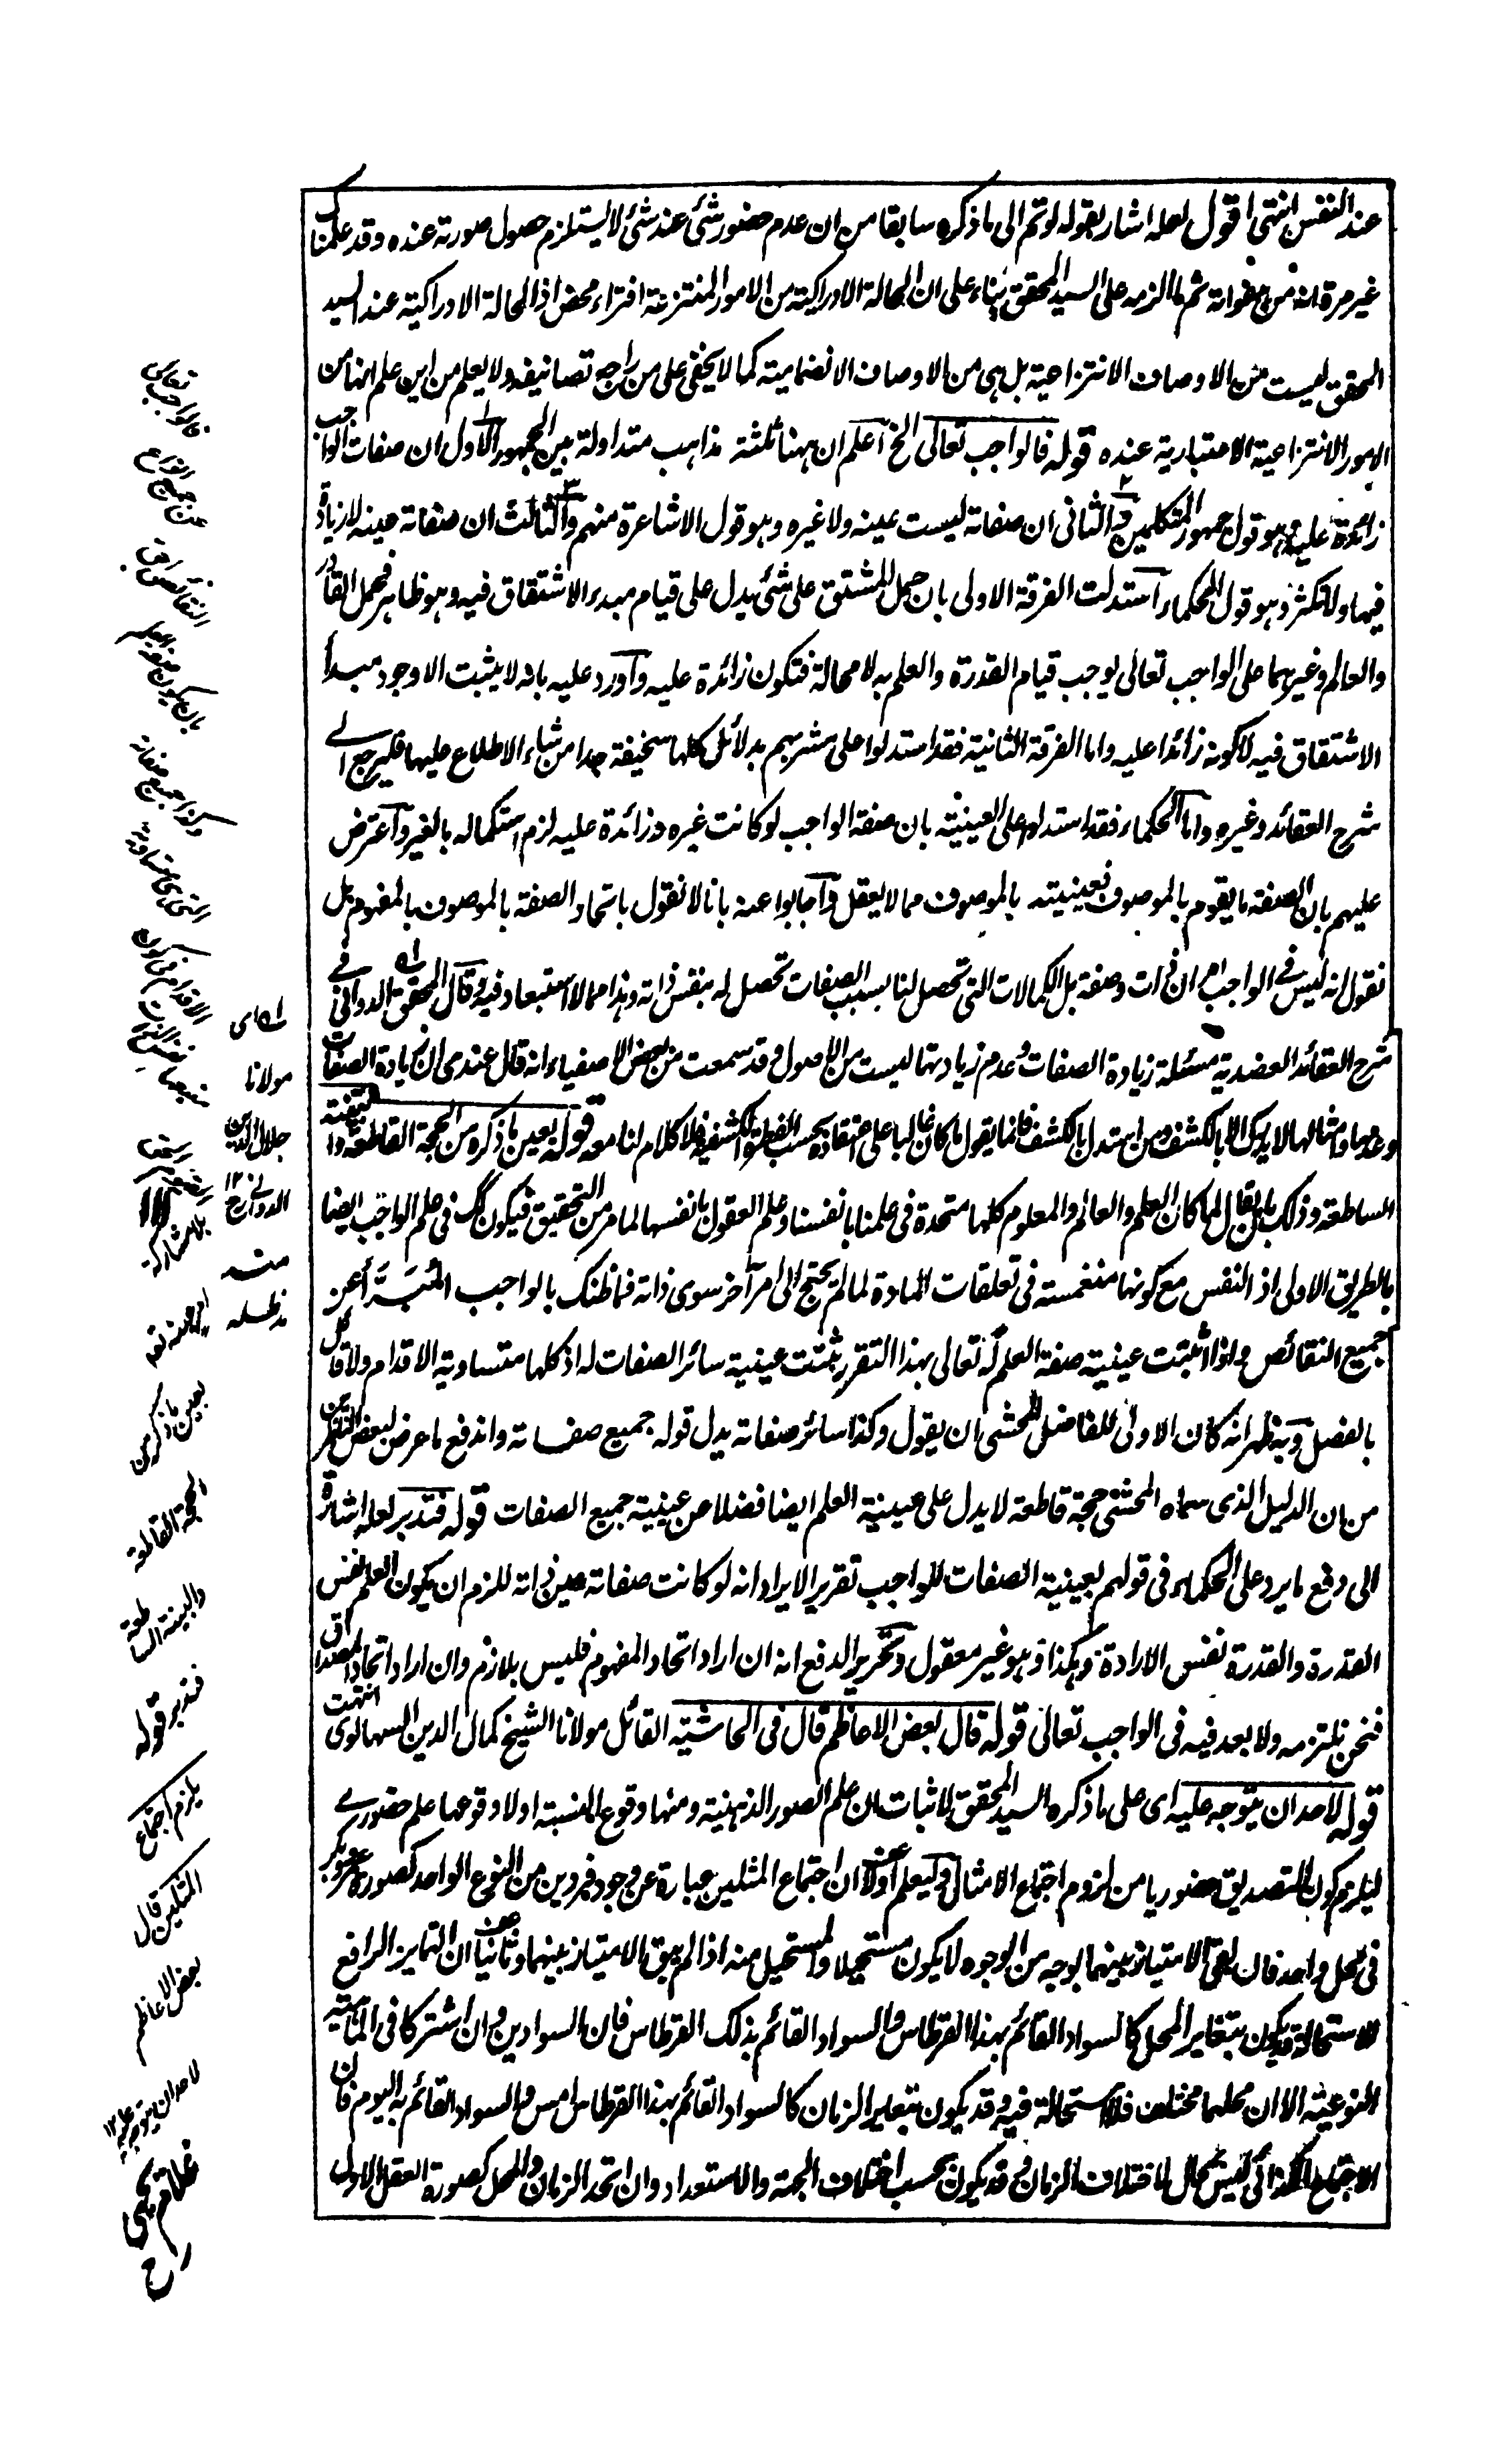 عند النفس انتهى اقول لعله اشار بقوله لو تم الى ما ذكره سابقا من ان عدم حضور شئ عند شئ لا يستلزم حصول صورته عنده وقد علمناك
غير مرة انه من هفواته ثم ما الزمه على السيد المحقق بناء على ان الحالة الادراكية من الامور المنتزعة افتراء محض اذ الحالة الادراكية عند السيد
المحقق ليست من الاوصاف الانتزاعية بل هى من الاوصاف الانضمامية كما لا يخفى على من راجع تصانيفه ولا يعلم من اين علم انها من
الامور الانتزاعية الاعتبارية عنده قوله فالواجب تعالى الخ اعلم ان ههنا ثلثة مذاهب متداولة بين الجمهور الاول ان صفات الواجب
زائدة عليه وهو قول جمهور المتكلمين والثانى ان صفاته ليست عينه ولا غيره وهو قول الاشاعرة منهم والثالث ان صفاته عينه لا زيادة
فيها ولا تكثر وهو قول الحكماء استدلت الفرقة الاولى بان حمل المشتق على شئ يدل على قيام مبدء الاشتقاق فيه وهو ظاهر فحمل القادر
والعالم وغيرهما على الواجب تعالى يوجب قيام القدرة والعلم به لا محالة فتكون زائدة عليه واورد عليه بانه لا يثبت الا وجود مبدأ
الاشتقاق فيه لا كونه زائدا عليه واما الفرقة الثانية فقد استدلوا على مشربهم بدلائل كلها سخيفة جدا من شاء الاطلاع عليها فليرجع الى
شرح العقائد وغيره واما الحكماء فقد استدلوا على العينية بان صفة الواجب لو كانت غيره وزائدة عليه لزم استكماله بالغير واعترض
عليهم بان الصفة ما يقوم بالموصوف فعينيته بالموصوف مما لا يعقل واجابوا عنه بانا لا نقول باتحاد الصفة بالموصوف بالمفهوم بل
نقول انه ليس فى الواجب امران ذات وصفة بل الكمالات التى تحصل لنا بسبب الصفات تحصل له بنفس ذاته وهذا مما لا استبعاد فيه وقال المحقق الدوانى فى
شرح العقائد العضدية مسئلة زيادة الصفات وعدم زيادتها ليست من الاصول وقد سمعت من بعض الاصفياء انه قال عندى ان زيادة الصفات
وعدمها وامثالها لا يدرك الا بالكشف ومن استدل بالكشف فانما يقول ما كان غالبا على اعتقاده بحسب الفطرة الكشفية فلا كلام لنا معه قوله بعين ما ذكره من الحجة القاطعة والبينة
الساطعة وذلك بان يقال لما كان العلم والعالم والمعلوم كلها متحدة فى علمنا بانفسنا وعلم العقول بانفسها لما مر من التحقيق فيكون كك فى علم الواجب ايضا
بالطريق الاولى اذ النفس مع كونها منغمسة فى تعلقات المادة لما لم يحتج الى امر آخر سوى ذاته فما ظنك بالواجب المُبَرَّأ عن
جميع النقائص واذا اثبتت عينية صفة العلم له تعالى بهذا التقرر ثبتت عينية سائر الصفات له اذ كلها متساوية الاقدام ولا قائل
بالفصل وبه ظهر انه كان الاولى للفاضل المحشى ان يقول وكذا سائر صفاته بدل قوله جميع صفاته واندفع ما عرض لبعض الناظرين
من ان الدليل الذى سماه المحشى حجة قاطعة لا يدل على عينية العلم ايضا فضلا عن عينية جميع الصفات قوله فتدبر لعله اشارة
الى دفع ما يرد على الحكماء فى قولهم بعينية الصفات للواجب تقرير الايراد انه لو كانت صفاته عين ذاته للزم ان يكون العلم نفس
القدرة والقدرة نفس الارادة وهكذا وهو غير معقول وتحرير الدفع انه ان اراد اتحاد المفهوم فليس بلازم وان اراد اتحاد المصداق
فنحن نلتزمه ولا بعد فيه فى الواجب تعالى قوله قال بعض الاعاظم قال فى الحاشية القائل مولانا الشيخ كمال الدين السهالوى انتهت
قوله لاحد ان يتوجه عليه اى على ما ذكره السيد المحقق لاثبات ان علم الصور الذهنية ومنها وقوع النسبة اولا وقوعها علم حضورى
ليلزم كون التصديق حضوريا من لزوم اجتماع الامثال وليعلم اولا ان اجتماع المثلين عبارة عن وجود فردين من النوع الواحد كصورة عمرو بكر
فى محل واحد فان بقى الامتياز بينهما بوجه من الوجوه لا يكون مستحيلا والمستحيل منه اذا لم يبق الامتياز بينهما وثانيا ان التمايز الرافع
للاستحالة قد يكون بتغاير المحل كالسواد القائم بهذا القرطاس والسواد القائم بذلك القرطاس فان السوادين وان اشتركا فى الماهية
النوعية الا ان محلهما مختلف فلا استحالة فيه وقد يكون بتغاير الزمان كالسواد القائم بهذا القرطاس امس والسواد القائم به اليوم فان
الاجتماع الكذائى ليس بمحال لاختلاف الزمان وقد يكون بحسب اختلاف الجهة والاستعداد وان اتحد الزمان والمحل كصورة العقل الاول
اى
مولانا
جلال الدين
الدوانى ١٢
منه
مدظله
فالواجب تعالى
عن جميع انواع
النقائص
بان يكون
وكذا جميع صفاته
بعين ما ذكر من
الحجة القاطعة
والبينة الساطعة
فتدبر قوله
يلزم اجتماع
المثلين قال
بعض الاعاظم
لاحد ان يتوجه عليه ١٢
غلام يحيى